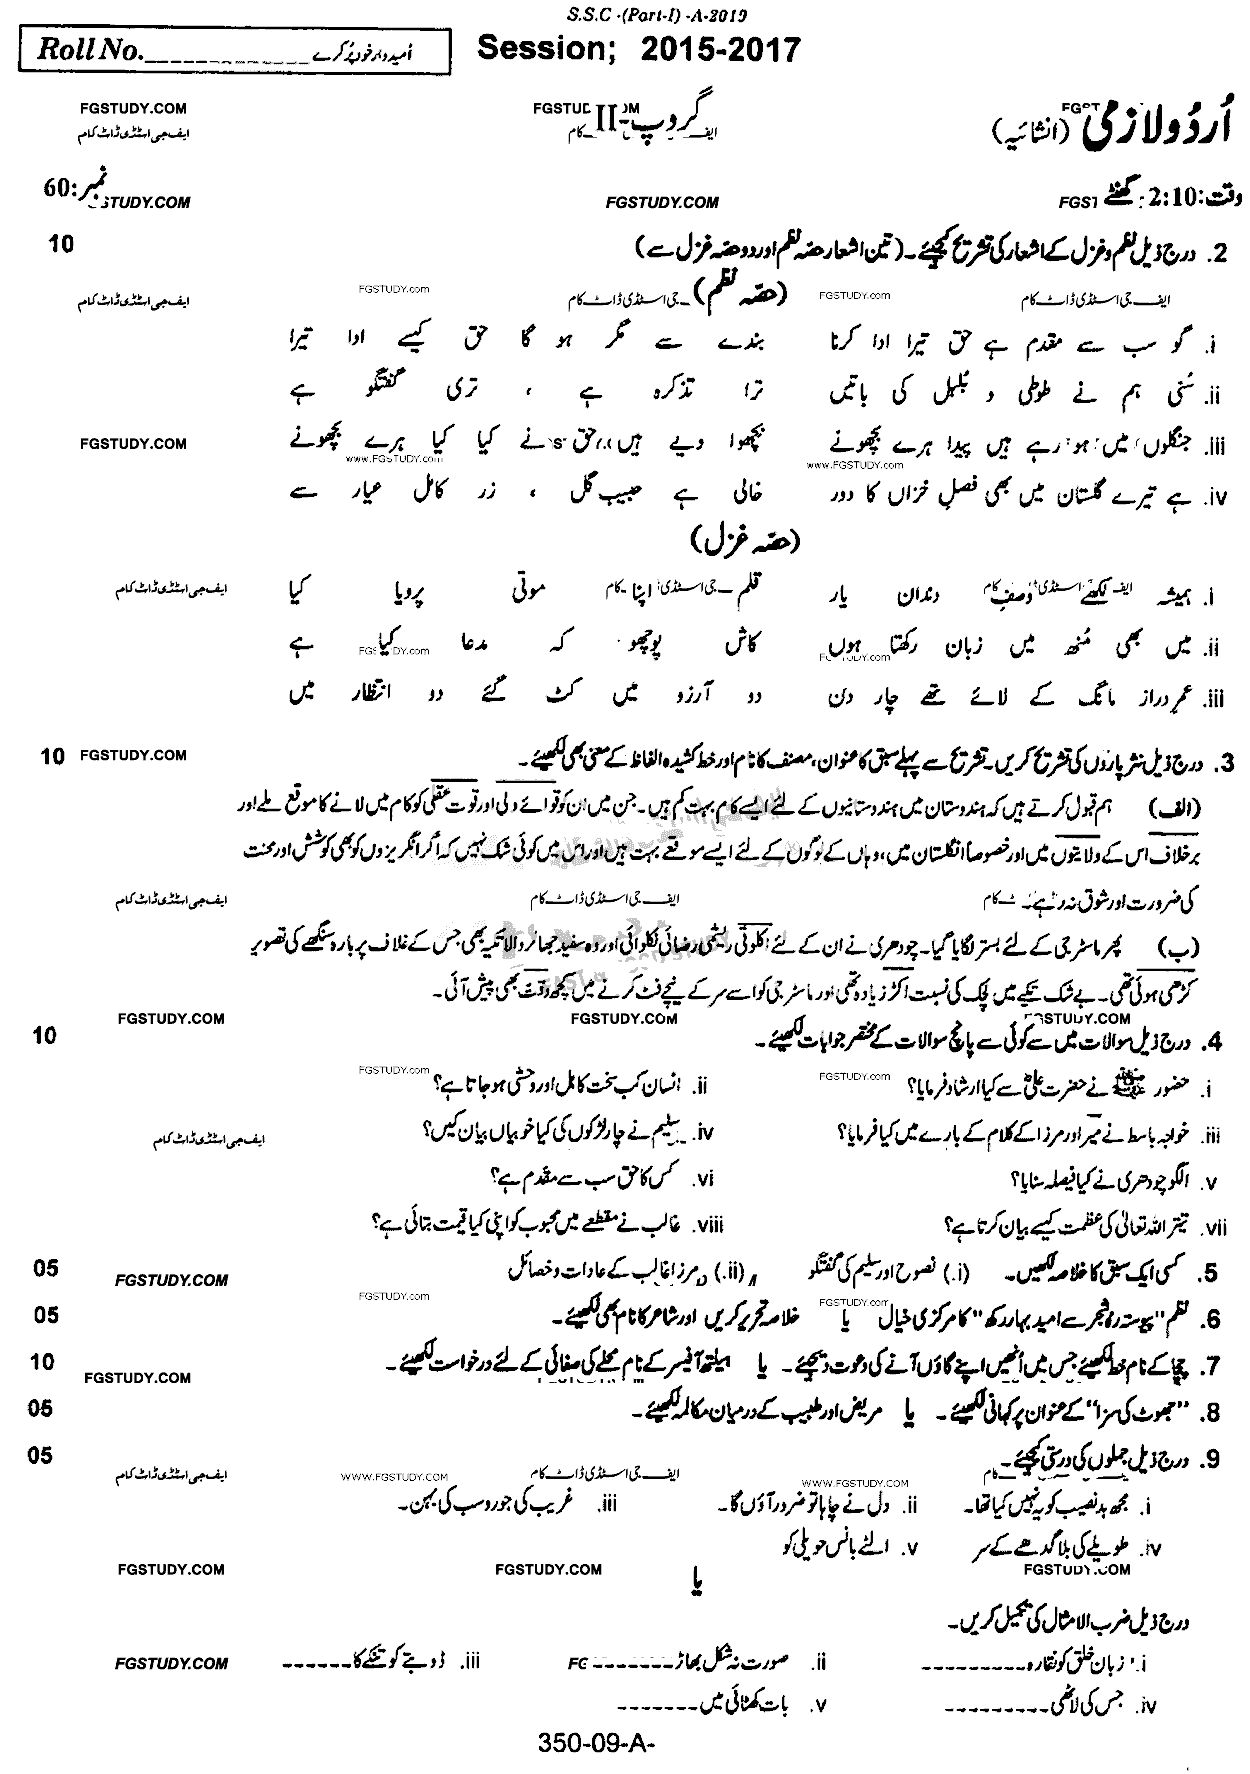 S.S.C -(Part-I) -A-2019
Roll No. _ _ _ _ _ _ _ _ _ _ _ _ _ اُمیدوار خود پُر کرے Session; 2015-2017
FGSTUDY.COM
ایف جی اسٹڈی ڈاٹ کام
اُردو لازمی (انشائیہ) گروپ-II
وقت:2:10 گھنٹے نمبر:60
FGSTUDY.COM
2. درج ذیل نظم و غزل کے اشعار کی تشریح کیجئے۔ (تین اشعار حصّہ نظم اور دو حصّہ غزل سے) 10
(حصّہ نظم)
i. گو سب سے مقدم ہے حق تیرا ادا کرنا بندے سے مگر ہو گا حق کیسے ادا تیرا
ii. سُنی ہم نے طوطی و بُلبل کی باتیں ترا تذکرہ ہے ، تری گفتگو ہے
iii. جنگلوں میں ہو رہے ہیں پیدا ہرے بچھونے بچھوا دیے ہیں حق نے کیا کیا ہرے بچھونے
iv. ہے تیرے گلستان میں بھی فصلِ خزاں کا دور خالی ہے جیب گل ، زر کامل عیار سے
(حصّہ غزل)
i. ہمیشہ لکھنے وصف دندان یار قلم اپنا موتی پرویا کیا
ii. میں بھی مُنھ میں زبان رکھتا ہوں کاش پوچھو کہ مدعا کیا ہے
iii. عمر دراز مانگ کے لائے تھے چار دن دو آرزو میں کٹ گئے دو انتظار میں
3. درج ذیل نثر پاروں کی تشریح کریں۔ تشریح سے پہلے سبق کا عنوان، مصنف کا نام اور خط کشیدہ الفاظ کے معنی بھی لکھیئے۔ 10
(الف) ہم قبول کرتے ہیں کہ ہندوستان میں ہندوستانیوں کے لئے ایسے کام بہت کم ہیں۔ جن میں ان کو قوائے دلی اور قوت عقلی کو کام میں لانے کا موقع ملے اور
برخلاف اس کے ولایتوں میں اور خصوصاً انگلستان میں، وہاں کے لوگوں کے لئے ایسے موقعے بہت ہیں اور اس میں کوئی شک نہیں کہ اگر انگریزوں کو بھی کوشش اور محنت
کی ضرورت اور شوق نہ رہے۔
(ب) پھر ماسٹر جی کے لئے بستر لگایا گیا۔ چودھری نے ان کے لئے اکلوتی ریشمی رضائی نکلوائی اور وہ سفید جھالر والا تکیہ بھی جس کے غلاف پر بارہ سنگھے کی تصویر
کڑھی ہوئی تھی۔ بے شک تکیے میں لچک کی نسبت اکڑ زیادہ تھی اور ماسٹر جی کو اسے سر کے نیچے فٹ کرنے میں کچھ دقت بھی پیش آئی۔
4. درج ذیل سوالات میں سے کوئی سے پانچ سوالات کے مختصر جوابات لکھیئے۔ 10
i. حضور ﷺ نے حضرت علیؓ سے کیا ارشاد فرمایا؟ ii. انسان کب سخت کاہل اور وحشی ہو جاتا ہے؟
iii. خواجہ باسط نے میر اور مرزا کے کلام کے بارے میں کیا فرمایا؟ iv. سلیم نے چار لڑکوں کی کیا خوبیاں بیان کیں؟
v. الگو چودھری نے کیا فیصلہ سنایا؟ vi. کس کا حق سب سے مقدم ہے؟
vii. تیتر اللہ تعالیٰ کی عظمت کیسے بیان کرتا ہے؟ viii. غالب نے مقطعے میں محبوب کو اپنی کیا قیمت بتائی ہے؟
5. کسی ایک سبق کا خلاصہ لکھیں۔ (i.) نصوح اور سلیم کی گفتگو (ii.) مرزا غالب کے عادات و خصائل 05
6. نظم "پیوستہ رہ شجر سے امید بہار رکھ" کا مرکزی خیال یا خلاصہ تحریر کریں اور شاعر کا نام بھی لکھیئے۔ 05
7. چچا کے نام خط لکھیئے جس میں اُنھیں اپنے گاؤں آنے کی دعوت دیجئے۔ یا ہیلتھ آفیسر کے نام محلے کی صفائی کے لئے درخواست لکھیئے۔ 10
8. "جھوٹ کی سزا" کے عنوان پر کہانی لکھیئے۔ یا مریض اور طبیب کے درمیان مکالمہ لکھیئے۔ 05
9. درج ذیل جملوں کی درستی کیجئے۔ 05
i. مجھ بدنصیب کو یہ نہیں کیا تھا۔ ii. دل نے چاہا تو ضرور آؤں گا۔ iii. غریب کی جورو سب کی بہن۔
iv. طویلے کی بلا گدھے کے سر v. الٹے بانس حویلی کو
یا
درج ذیل ضرب الامثال کی تکمیل کریں۔
i. زبان خلق کو نقارہ--------- ii. صورت نہ شکل بھاڑ------- iii. ڈوبتے کو تنکے کا------
iv. جس کی لاٹھی--------- v. بات کھٹائی میں-------
350-09-A-